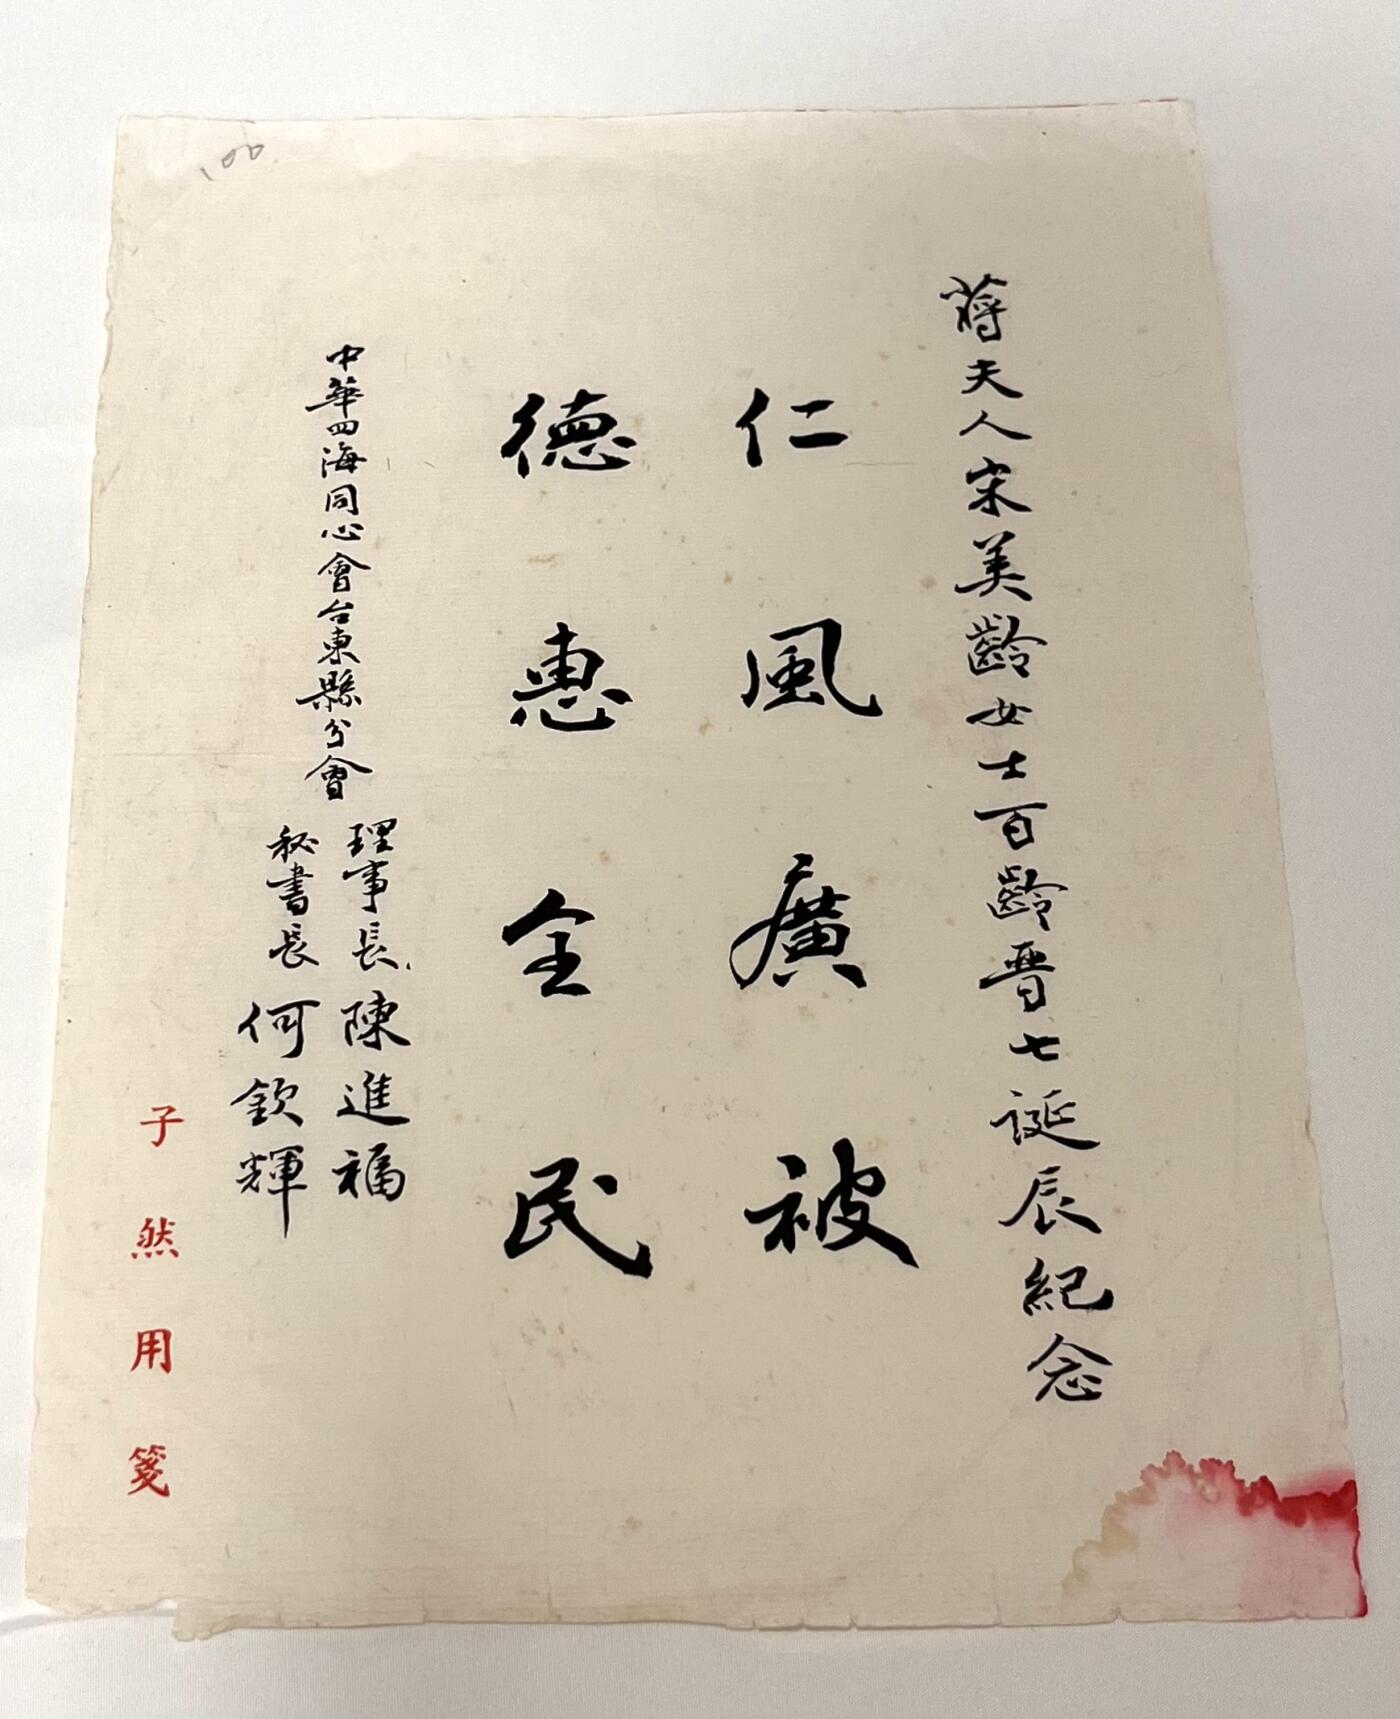 蔣夫人宋美齡女士百齡晋七誕辰紀念
仁風廣被
德惠全民
中華四海同心會台東縣分會
理事長 陳進福
秘書長 何欽輝
子然用箋
100